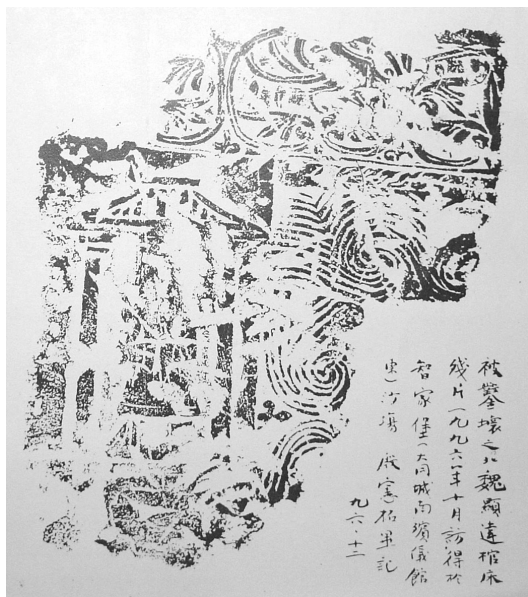 被鑿壞之北魏顯達棺床
残片(一九九六年十月訪得於
智家堡(大同城南殯儀館
東)沙場 殷憲拓畢記
九六·十二